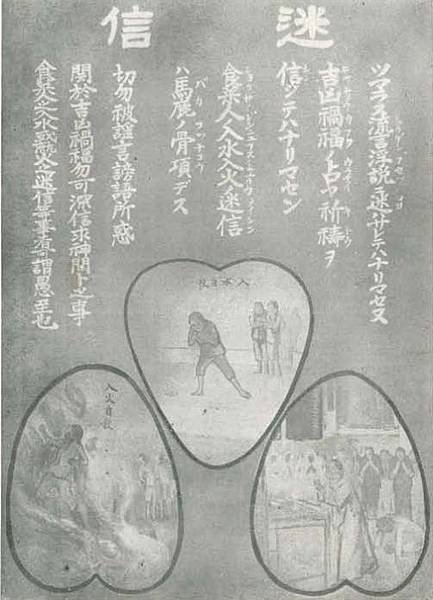 迷信
ツマラヌ流言浮説ニ迷サレテハナリマセヌ
吉凶禍福ノ占ヤ祈禱ヲ
信ジテハナリマセン
食菜人入水入火ノ迷信
ハ馬鹿ノ骨項デス
切勿被謡言謗語所惑
關於吉凶禍福勿可深信求神問卜之事
食菜之入水或入火之迷信
可謂愚至也
入水自殺
入火自殺